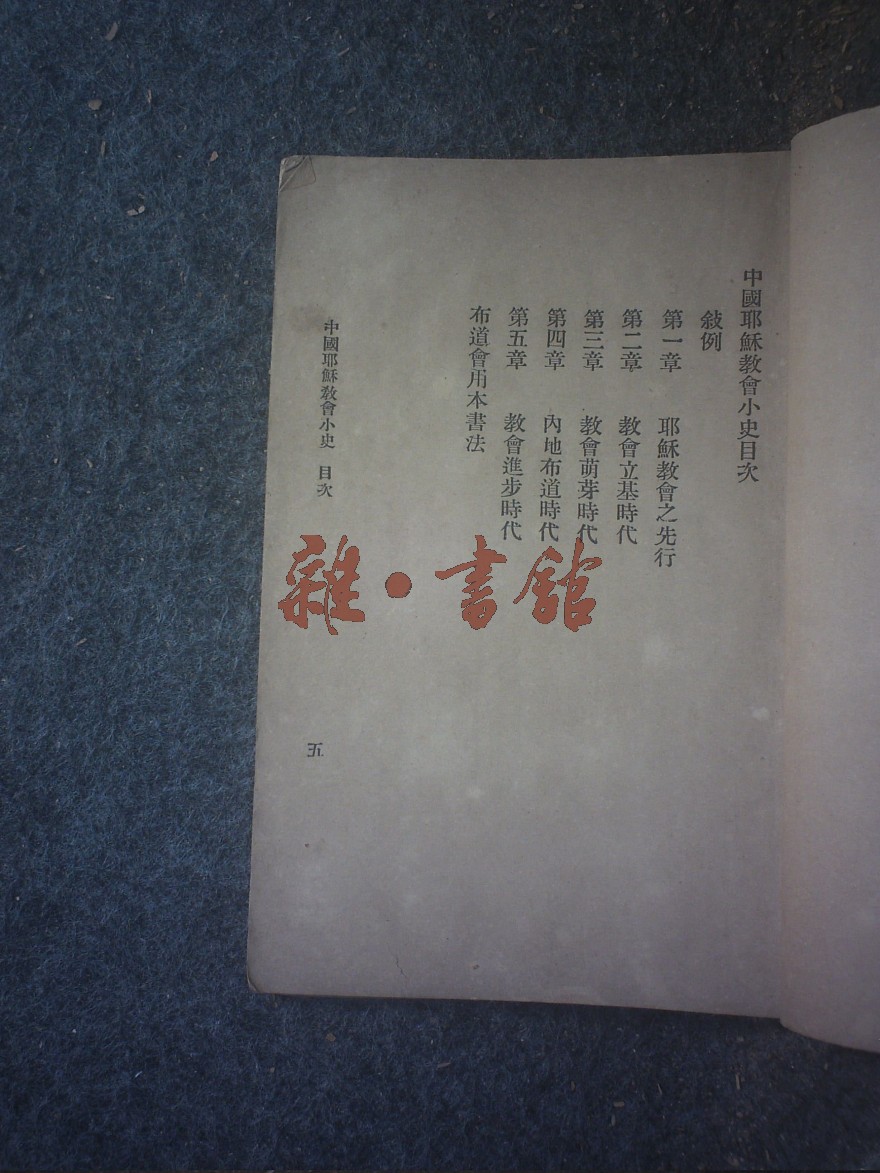 中國耶穌教會小史目次
敍例
第一章 耶穌教會之先行
第二章 教會立基時代
第三章 教會萌芽時代
第四章 內地布道時代
第五章 教會進步時代
布道會用本書法
中國耶穌教會小史 目次
五
雜·書館